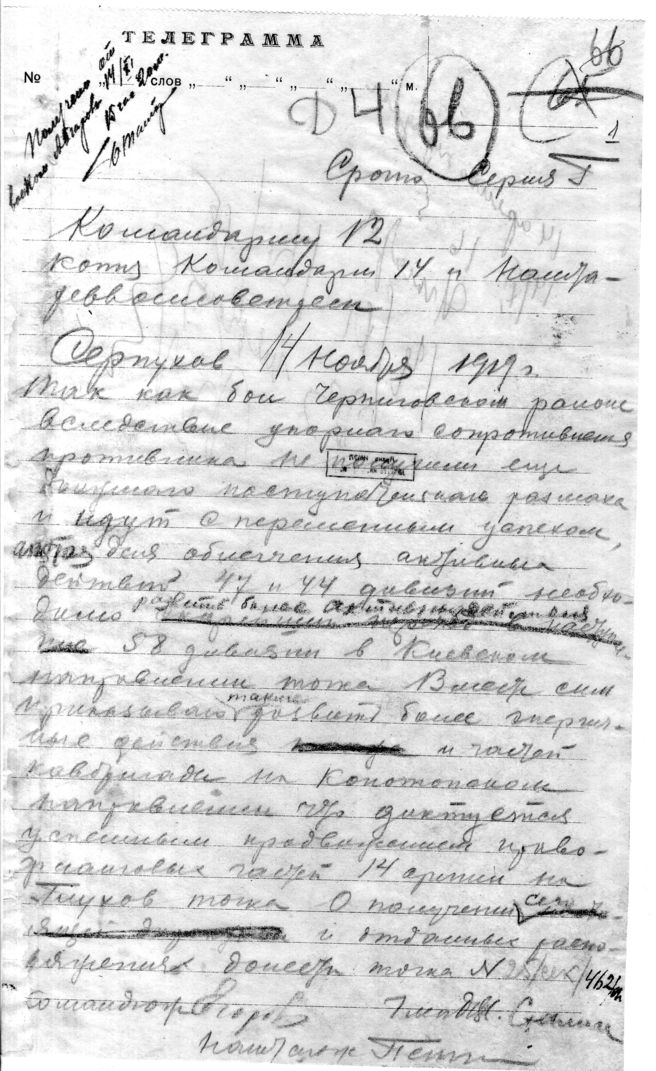 ТЕЛЕГРАММА
№ „ слов „ “ „ “ „ “ м.
Получено от
14/XI
15 час 20 м.
Д 4 66
66
1
Срочно Серия Г
Командарму 12
копия Командарм 14 и Нашта-
Серпухов 14 ноября 1919 г.
Так как бои Черниговском районе
вследствие упорнаго сопротивления
противника не получили еще
должнаго поступательнаго размаха
и идут с переменным успехом,
для облегчения активных
действий 47 и 44 дивизий необхо-
димо развить более активныя действия
58 дивизии в Киевском
направлении точка Вместе сим
приказываю также развить более энергич-
ные действия и частей
кавбригады на Конотопском
направлении что диктуется
успешным продвижением право-
фланговых частей 14 армии на
Глухов точка О получении сего
и отданных распо-
ряжениях донести точка N 25/сек/4621/оп
Командюж Егоров Член РВС.
Наштаюж Петин